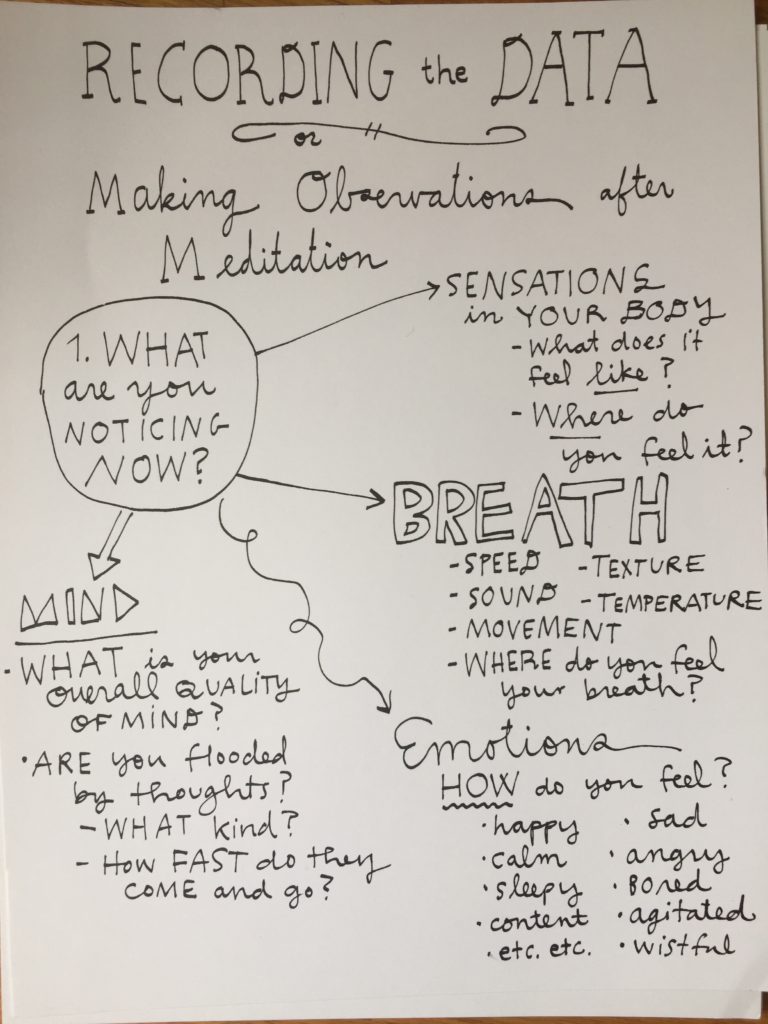 RECORDING the DATA
or
Making Observations after
Meditation
1. WHAT
are you
NOTICING
NOW?
SENSATIONS
in YOUR BODY
- What does it
feel like?
- Where do
you feel it?
BREATH
- SPEED - TEXTURE
- SOUND - TEMPERATURE
- MOVEMENT
- WHERE do you feel
your breath?
MIND
- WHAT is your
overall QUALITY
OF MIND?
• ARE you flooded
by thoughts?
- WHAT kind?
- How FAST do they
COME and go?
Emotions
HOW do you feel?
• happy • sad
• calm • angry
• sleepy • BORED
• content • agitated
• etc. etc. • wistful